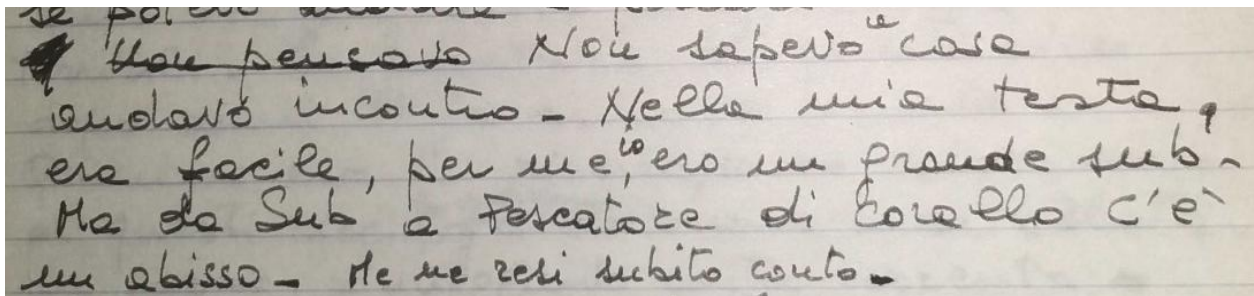 se potevo andare a
Non pensavo Non sapevo a cosa
andavo incontro - Nella mia testa,
era facile, per me, io ero un grande sub -
Ma da Sub a Pescatore di Corallo c'è
un abisso - Me ne resi subito conto -